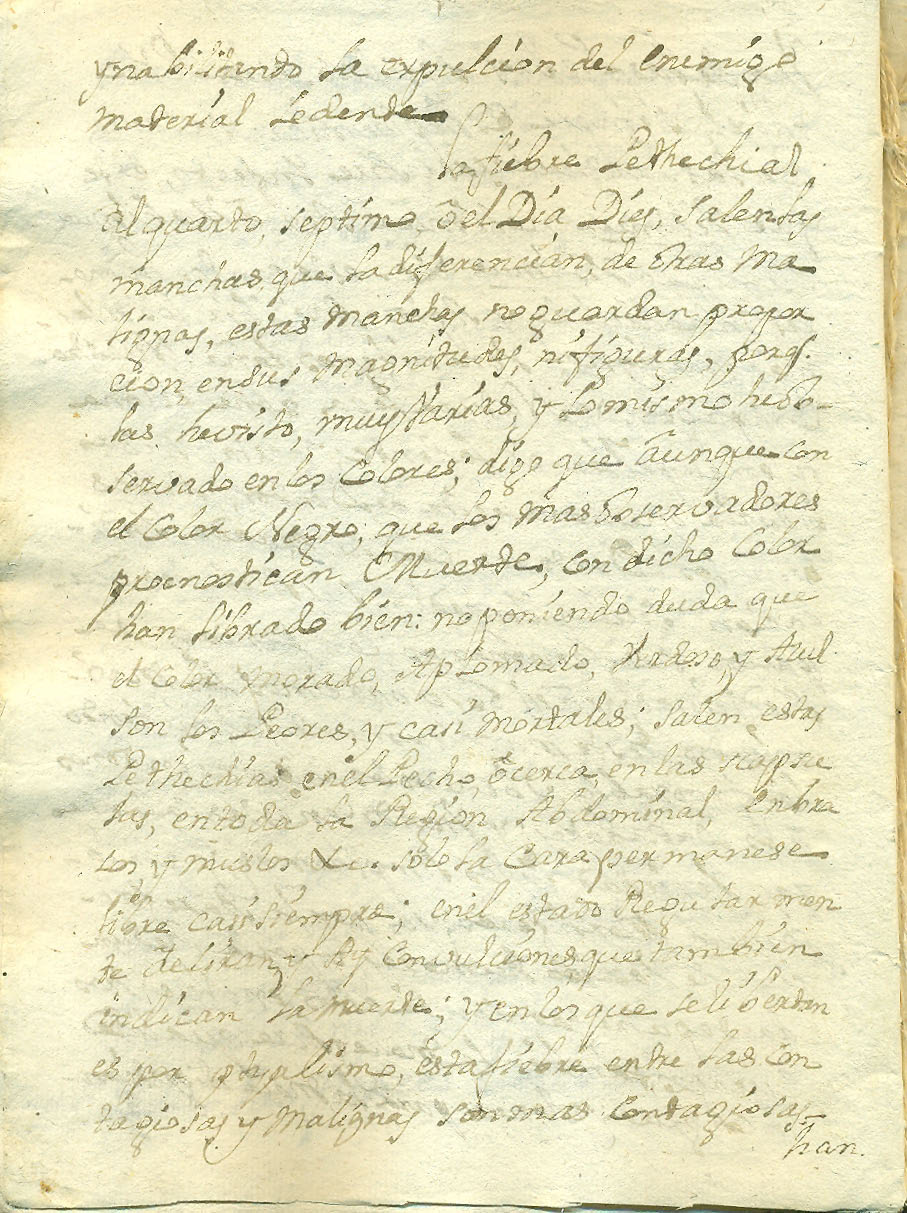 ynabilitando la expulcion del Enemigo
material Ledente
La fiebre Pethechial
al quarto, septimo, ô el Dia Dies, salen las
manchas que la diferencian, de otras ma
lignas, estas manchas no guardan propor
cion, en sus magnitudes, ni figuras, porq.
las he visto, muy Varias, y lo mismo he ob-
servado en los Colores; digo que âunque con
el Color Negro, que los mas observadores
prognostican Muerte, con dicho Color
han librado bien: no poniendo duda que
el Color morado, Aplomado, Verdoso, y Asul
son los Peores, y casi mortales; salen estas
Pethechias en el Pecho, ô cerca, en las scapu
las, en toda la Region Abdominal, en bra
sos y muslos &c. solo la Cara permanese
libre casi siempre; en el estado Regular men
te deliran, y Ay Convulciones que tambien
indican la muerte; y en los que se libertan
es por ptyalismo, esta fiebre entre las con
tagiosas y malignas son mas Contagiosas,
han.